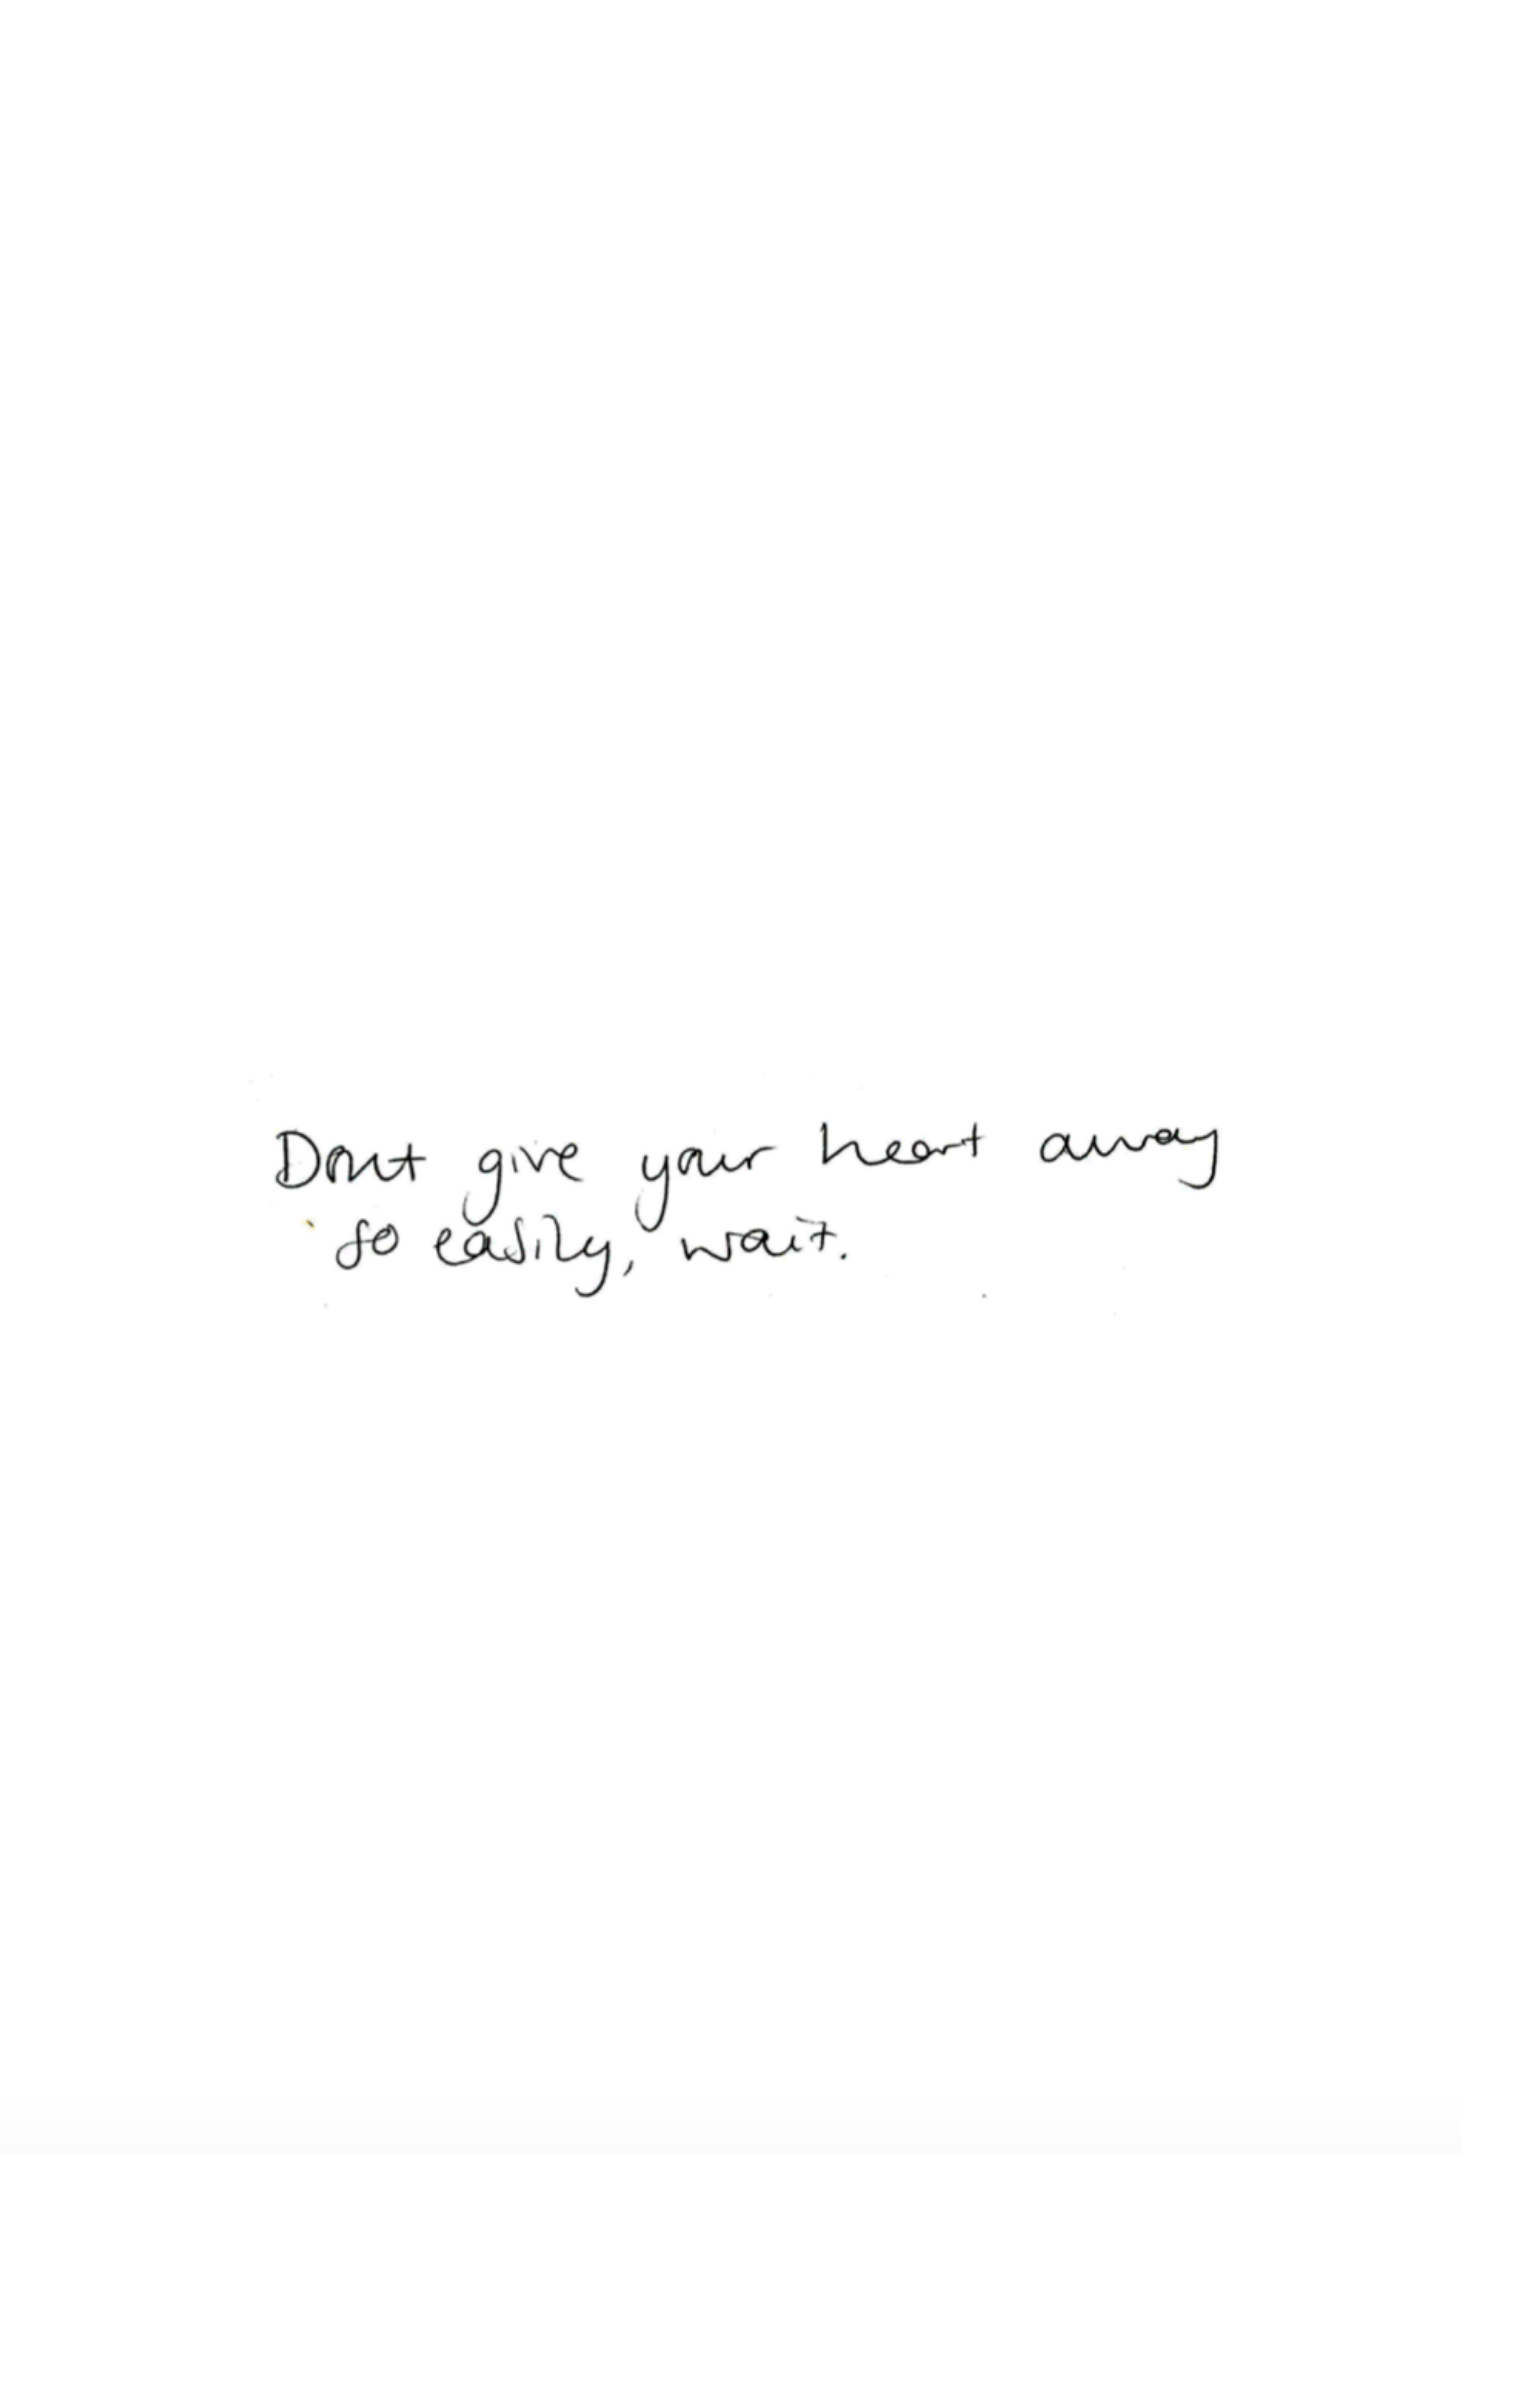 Dont give your heart away
so easily, wait.